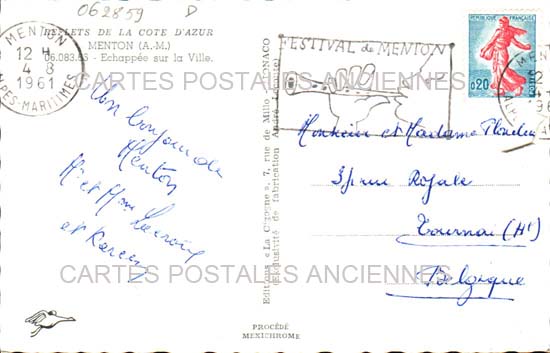 062859 D
REFLETS DE LA COTE D'AZUR
MENTON (A.-M.)
06.083.56 - Echappée sur la Ville.
MENTON
12 H
4 - 8
1961
ALPES-MARITIMES
FESTIVAL de MENTON
REPUBLIQUE FRANÇAISE
POSTES
0,20
Un bonjour de
Menton
Mr et Mme
et Kareen
Editions « La Cigogne », 7, rue de Millo, MONACO
Exclusivité de fabrication André
Monsieur et Madame
Royale
Tournai (Ht)
Belgique
CARTES POSTALES ANCIENNES
CARTES POSTALES ANCIENNES
PROCÉDÉ
MEXICHROME